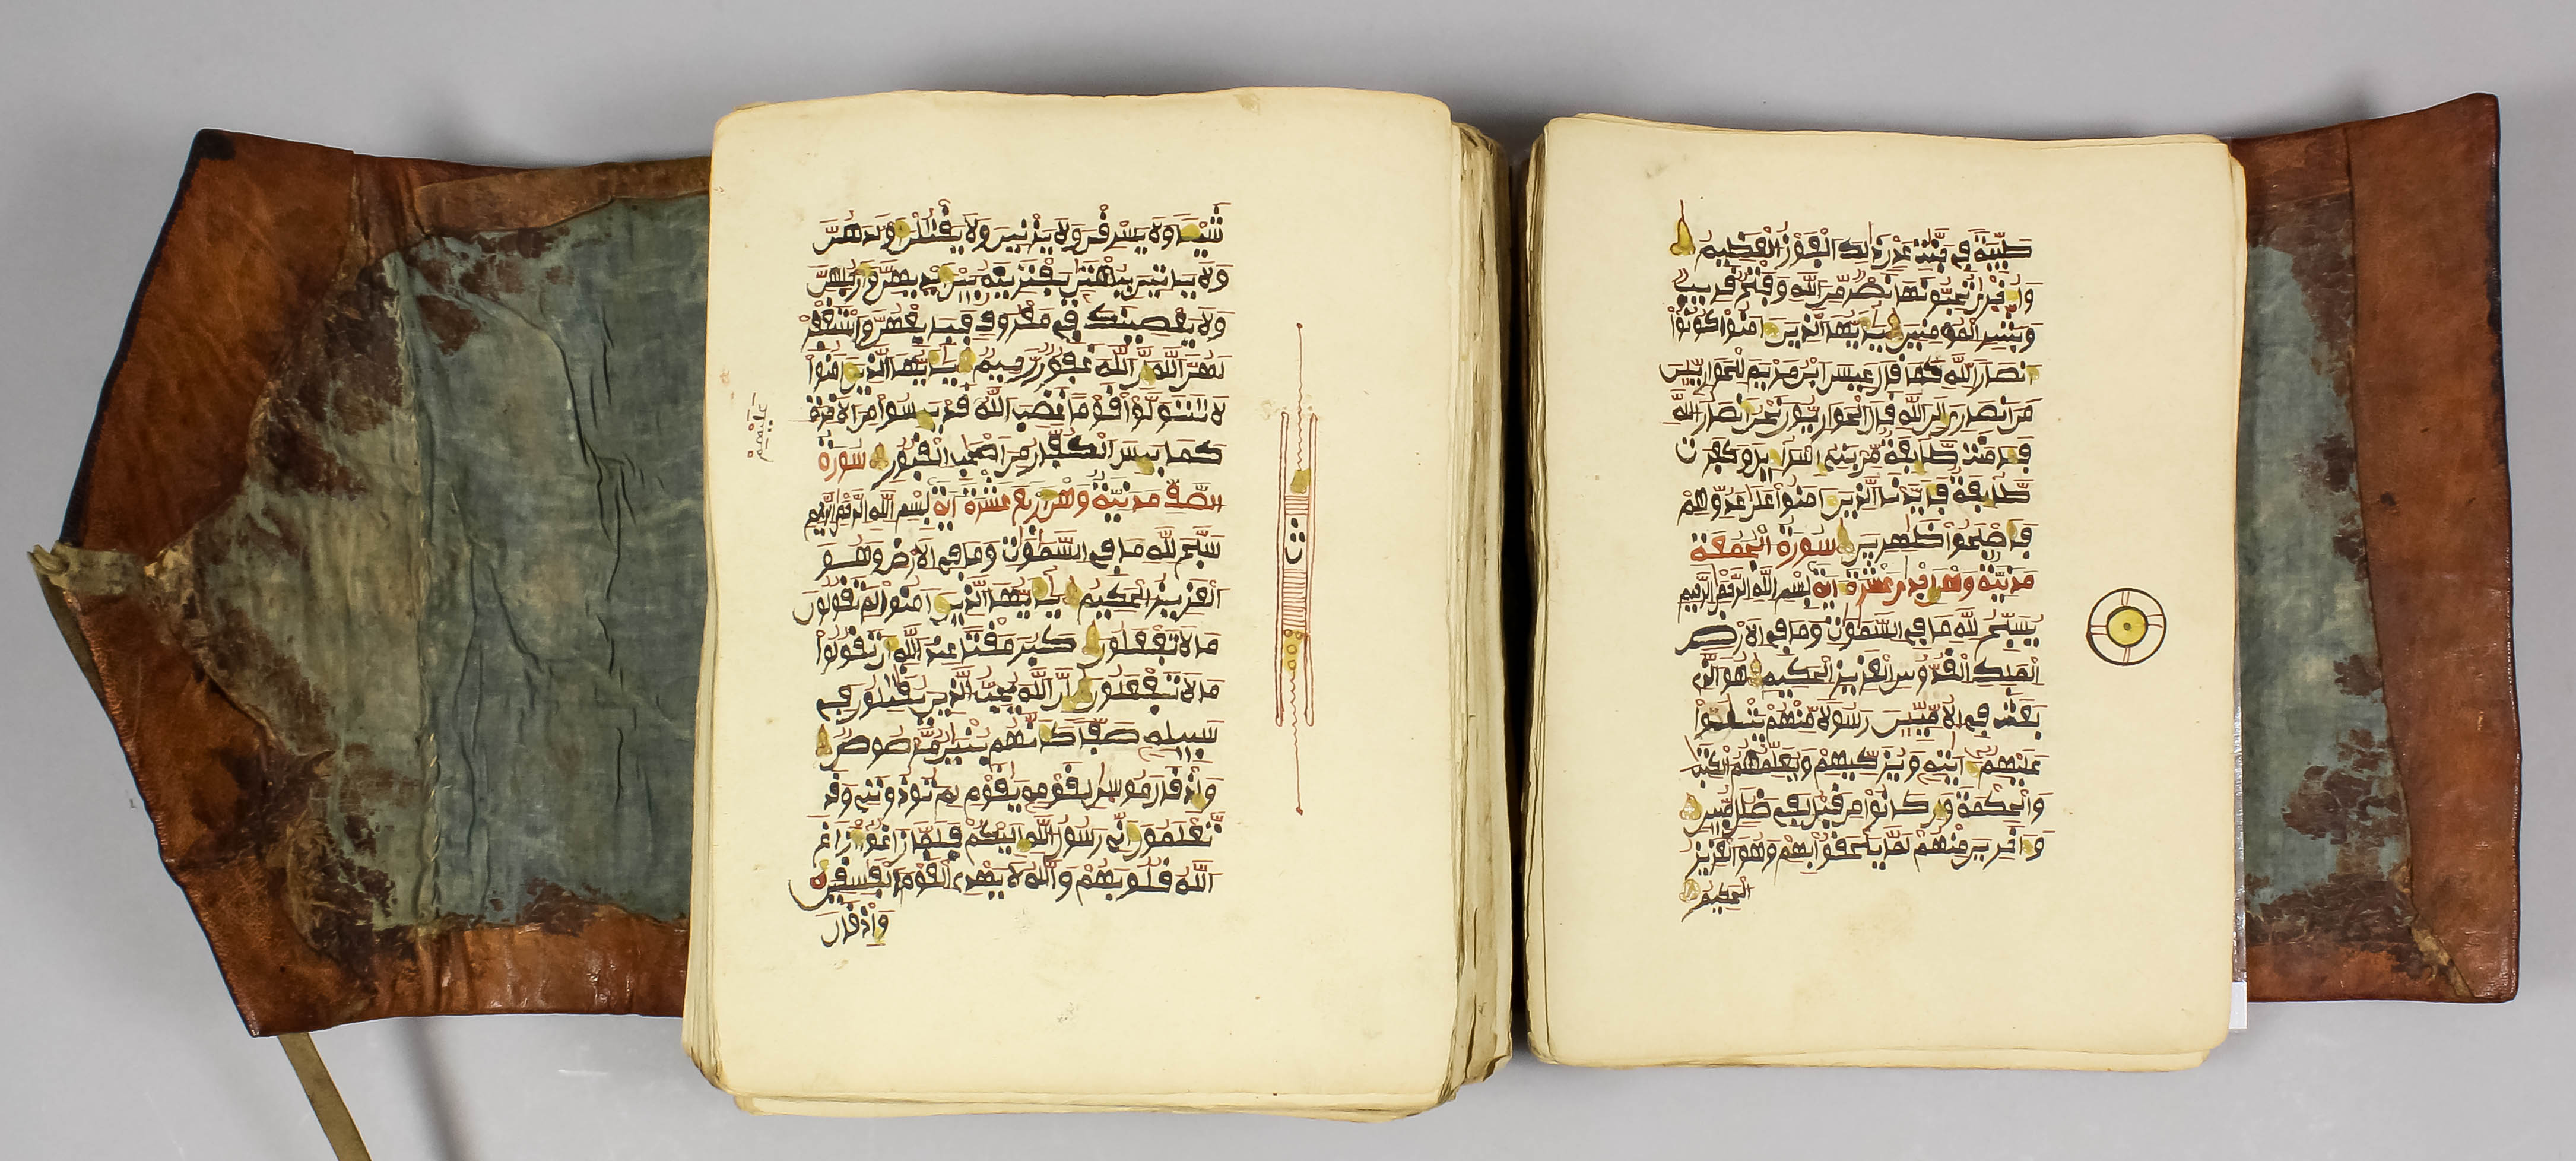 طيبة في جنت عدن ذلك الفوز العظيم
وأخرى تحبونها نصر من الله وفتح قريب
وبشر المومنين يأيها الذين ءامنوا كونوا
أنصارا لله كما قال عيسى ابن مريم للحواريين
من أنصاري إلى الله قال الحواريون نحن أنصار الله
فامنت طايفة من بني إسراءيل وكفرت
طايفة فأيدنا الذين ءامنوا على عدوهم
فأصبحوا ظهرين سورة الجمعة
مدنية وهي إحدى عشرة ءاية بسم الله الرحمن الرحيم
يسبح لله ما في السموت وما في الارض
الملك القدوس العزيز الحكيم هو الذي
بعث في الاميين رسولا منهم يتلوا
عليهم ءايته ويزكيهم ويعلمهم الكتب
والحكمة وإن كانوا من قبل لفي ضلل مبين
وءاخرين منهم لما يلحقوا بهم وهو العزيز
الحكيم
شيئا ولا يسرقن ولا يزنين ولا يقتلن أولدهن
ولا ياتين ببهتن يفترينه بين أيديهن وأرجلهن
ولا يعصينك في معروف فبايعهن واستغفر
لهن الله إن الله غفور رحيم يأيها الذين ءامنوا
لا تتولوا قوما غضب الله عليهم قد ييسوا من الاخرة
كما ييس الكفار من أصحب القبور سورة
الصف مدنية وهي أربع عشرة ءاية بسم الله الرحمن الرحيم
سبح لله ما في السموت وما في الارض وهو
العزيز الحكيم يأيها الذين ءامنوا لم تقولون
ما لا تفعلون كبر مقتا عند الله أن تقولوا
ما لا تفعلون إن الله يحب الذين يقتلون في
سبيله صفا كأنهم بنين مرصوص
وإذ قال موسى لقومه يقوم لم توذونني وقد
تعلمون أني رسول الله إليكم فلما زاغوا أزاغ
الله قلوبهم والله لا يهدي القوم الفسقين
وإذ قال